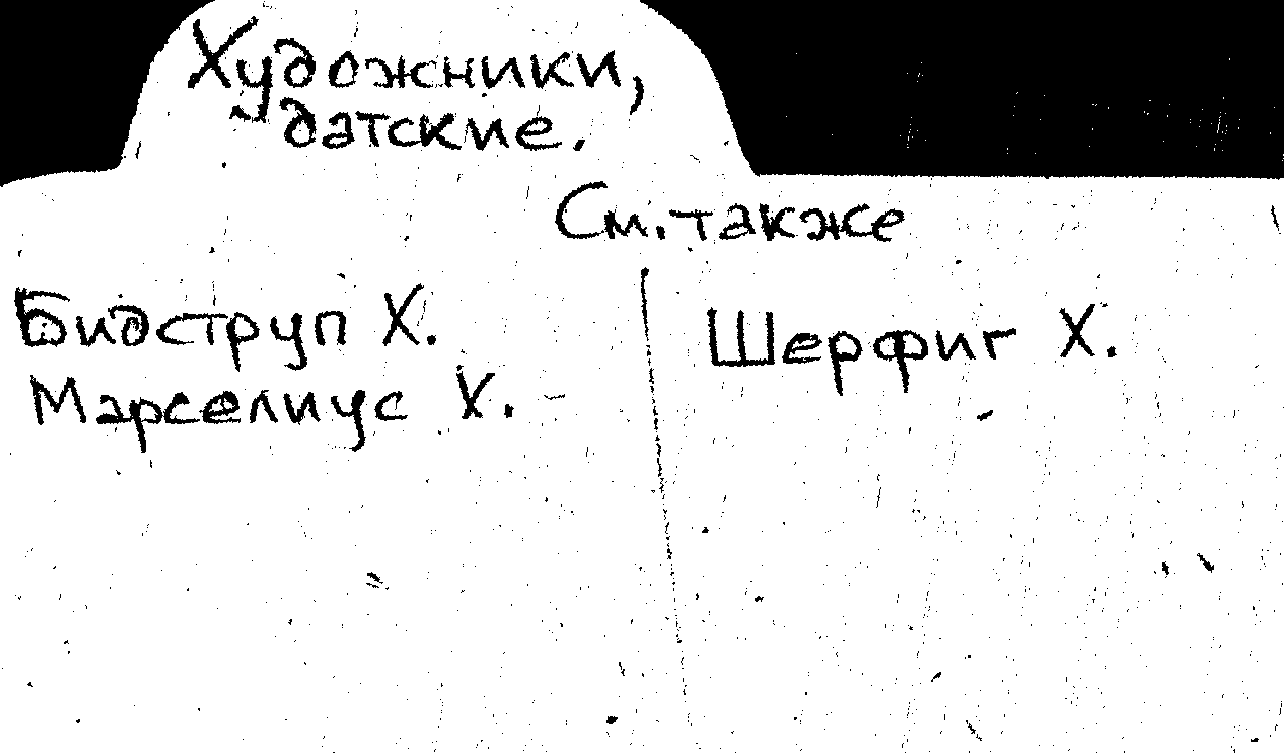 Художники,
датские.
См. также
Бидструп Х.
Марселиус Х.
Шерфиг Х.